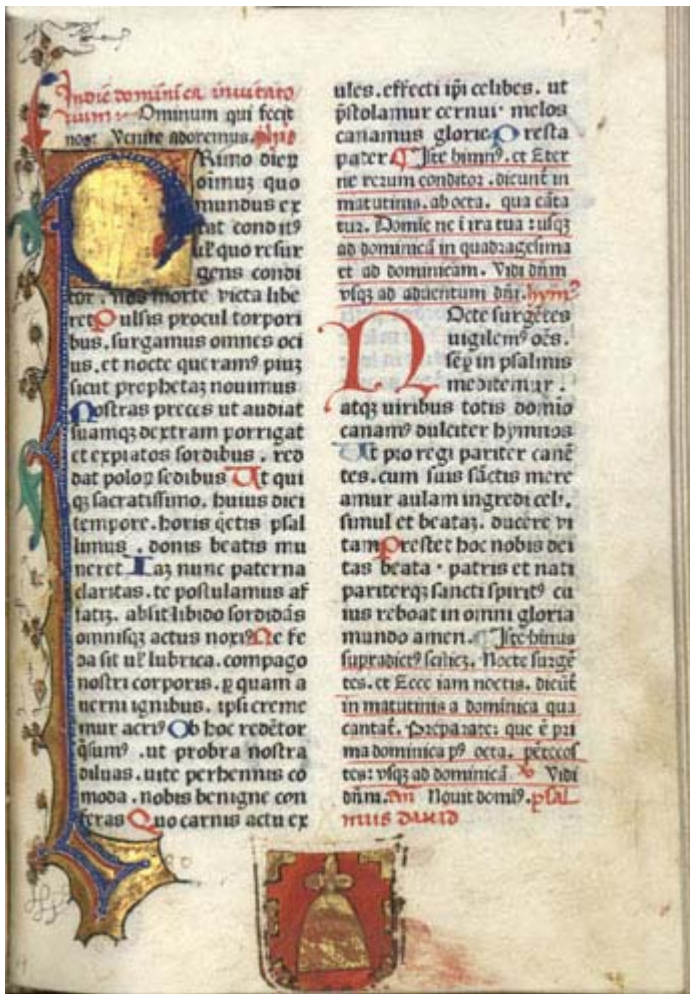 In die dominica invitato
rium. Dominum qui fecit
nos. Venite adoremus. 
Rimo dieꝝ
oīmuꝫ quo
mundus ex
tat conditꝰ
ul̕ quo resur
gens condi
tor . nos morte victa libe
ret Pulsis procul torpori
bus. surgamus omnes oci
us. et nocte queramꝰ piuꝫ
sicut prophetaꝫ nouimus
Nostras preces ut audiat
suamqꝫ dextram porrigat
et expiatos sordibus . red
dat poloꝝ sedibus Ut qui
qꝫ sacratissimo. huius diei
tempore. horis q̄etis psal
limus . donis beatis mu
neret Iaꝫ nunc paterna
claritas. te postulamus af
fatiꝫ. absit libido sordidās
omnisqꝫ actus noxiꝰ Ne fe
da sit ul̕ lubrica. compago
nostri corporis. ꝑ quam a
uerni ignibus. ipsi creme
mur acriꝰ Ob hoc redētor
q̄sumꝰ .ut probra nostra
diluas. uite perhennis cō
moda . nobis benigne con
feras Quo carnis actu ex
ules. effecti ip̄i celibes. ut
p̄stolamur cernui. melos
canamus glorie Presta
pater Iste himnꝰ. et Eter
ne rerum conditor . dicunt̄ in
matutinis. ab octa. qua cāta
tur. Domīe ne ī ira tua : usqꝫ
ad dominicā in quadragesima
et ad dominicam. Vidi dn̄m
vsqꝫ ad aduentum dn̄i. hym̄ꝰ
Nocte surgētes
uigilemꝰ oēs.
seꝑ in psalmis
meditemur .
atqꝫ uiribus totis domīo
canamꝰ dulciter hymnos
Ut pro regi pariter canē
tes. cum suis sāctis mere
amur aulam ingredi celi.
simul et beataꝫ. ducere vi
tam Prestet hoc nobis dei
tas beata . patris et nati
pariterqꝫ sancti spiritꝰ cu
ius reboat in omni gloria
mundo amen. Iste himnus
supradictꝰ scilicꝫ. Nocte surgē
tes. et Ecce iam noctis. dicūt̄
in matutinis a dominica qua
cantat̄. Preparate: que ē pri
ma dominica pꝰ octa. pētecos
tes: vsqꝫ ad dominicā Vidi
dn̄m. an̄ Nouit domīꝰ. psal
mus dauid